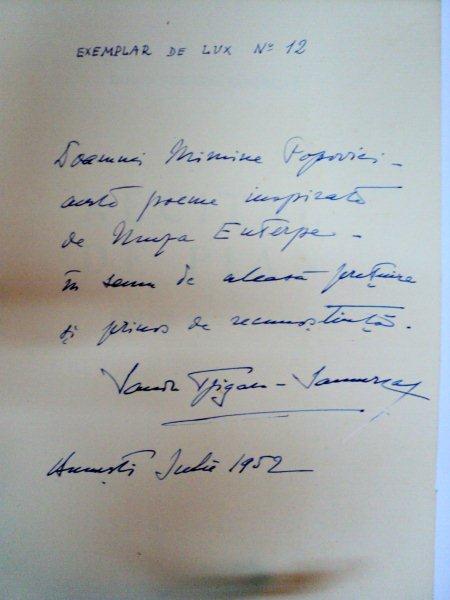 EXEMPLAR DE LUX Nº 12
Doamnei Mimine Popovici -
aceste poeme inspirate
de Muza Euterpe -
în semn de aleasă prețuire
și prinos de recunoștință.
Țigara - Samurcaș
Iulie 1952